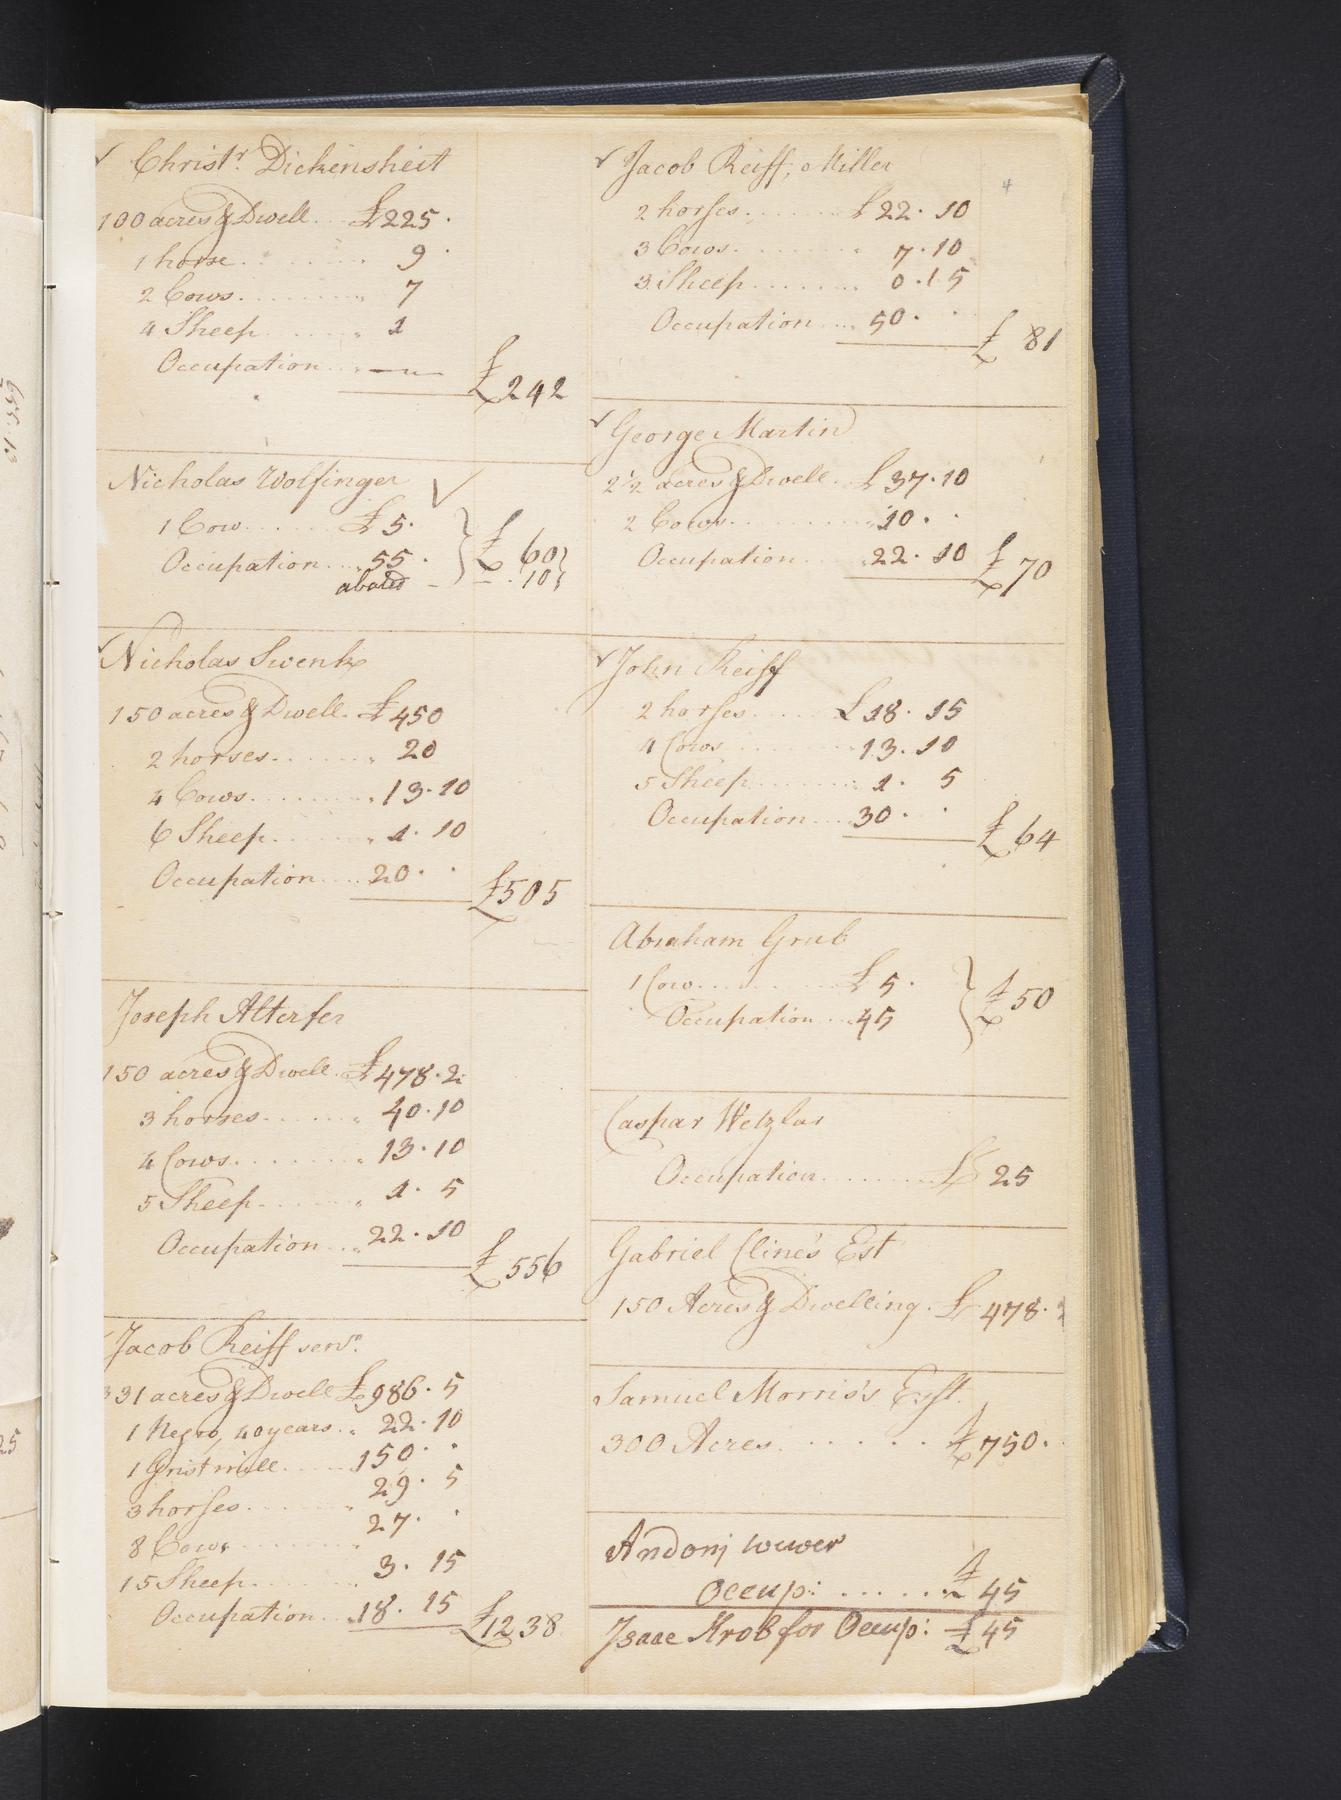 Christr. Dickensheit
100 acres & Dwell £225.
1 horse 9.
2 Cows 7
4 Sheep 1
Occupation
£242
Nicholas Wolfinger
1 Cow £5.
Occupation 55. £60
abated 10
Nicholas Swenk
150 acres & Dwell. £450
2 horses 20
4 Cows 13.10
6 Sheep 1.10
Occupation 20.
£505
Joseph Alterfer
150 acres & Dwell £478.2
3 horses 40.10
4 Cows 13.10
5 Sheep 1.5
Occupation 22.10
£556
Jacob Reiff senr.
331 acres & Dwell £986.5
1 Negro, 40 years 22.10
1 Grist mill 150.
3 horses 29.5
8 Cows 27.
15 Sheep 3.15
Occupation 18.15
£1238
Jacob Reiff, Miller
2 horses £22.10
3 Cows 7.10
3 Sheep 0.15
Occupation 50.
£81
George Martin
2½ acres & Dwell. £37.10
2 Cows 10.
Occupation 22.10
£70
John Reiff
2 horses £18.15
4 Cows 13.10
5 Sheep 1.5
Occupation 30.
£64
Abraham Grub
1 Cow £5.
Occupation 45
£50
Caspar Wetzlar
Occupation £25
Gabriel Cline's Est
150 Acres & Dwelling. £478.
Samuel Morris's Est.
300 Acres £750.
Andonj
Occup: £45
Isaac Krob for Occup: £45